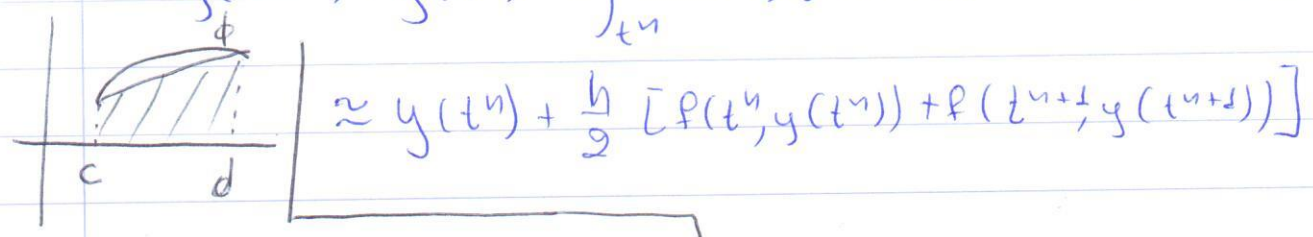 tⁿ
ϕ
≈ y(tⁿ) + h/2 [f(tⁿ, y(tⁿ)) + f(tⁿ⁺¹, y(tⁿ⁺¹))]
c d